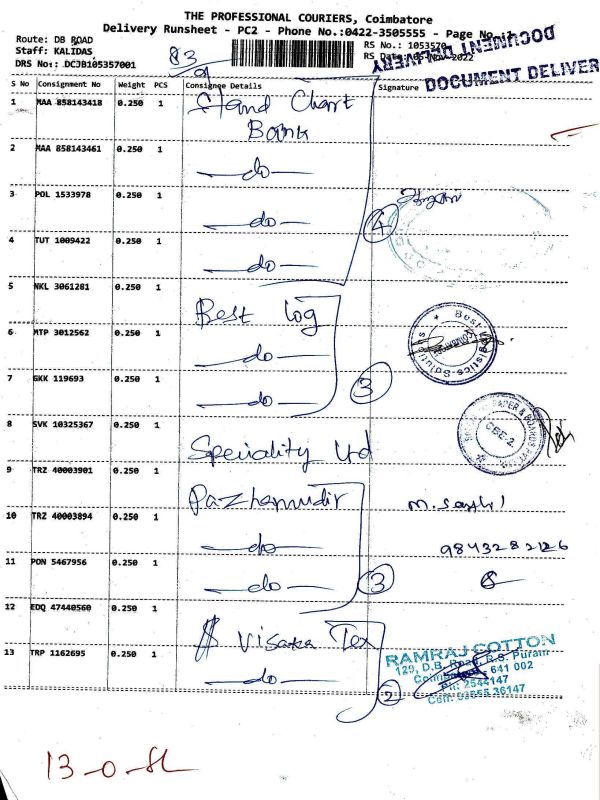 THE PROFESSIONAL COURIERS, Coimbatore
Delivery Runsheet - PC2 - Phone No.:0422-3505555 - Page No.:1
Route: DB ROAD
Staff: KALIDAS
DRS No:: DCJB105357001
83
RS No.: 1053570
RS Date: 05-Nov-2022
DOCUMENT DELIVERY
DOCUMENT DELIVER
S No Consignment No Weight PCS Consignee Details Signature
1 MAA 858143418 0.250 1 Stand Chart
Bank
2 MAA 858143461 0.250 1 do
3 POL 1533978 0.250 1 do
4 TUT 1009422 0.250 1 do
4
5 NKL 3061281 0.250 1 Best Log
6 MTP 3012562 0.250 1 do
7 GKK 119693 0.250 1 do
3
Best Logistics Solutions
8 SVK 10325367 0.250 1 Speciality Ltd
PAPER & BOARDS
CBE-2
9 TRZ 40003901 0.250 1 Pazhamudir
10 TRZ 40003894 0.250 1 do
9843282126
11 PON 5467956 0.250 1 do
3
12 EDQ 47440560 0.250 1 Visaka Tex
13 TRP 1162695 0.250 1 do
2
RAMRAJ COTTON
129, D.B. Road, R.S. Puram
Coimbatore - 641 002
Ph: 2544147
Cell: 93655 36147
13-0-SL